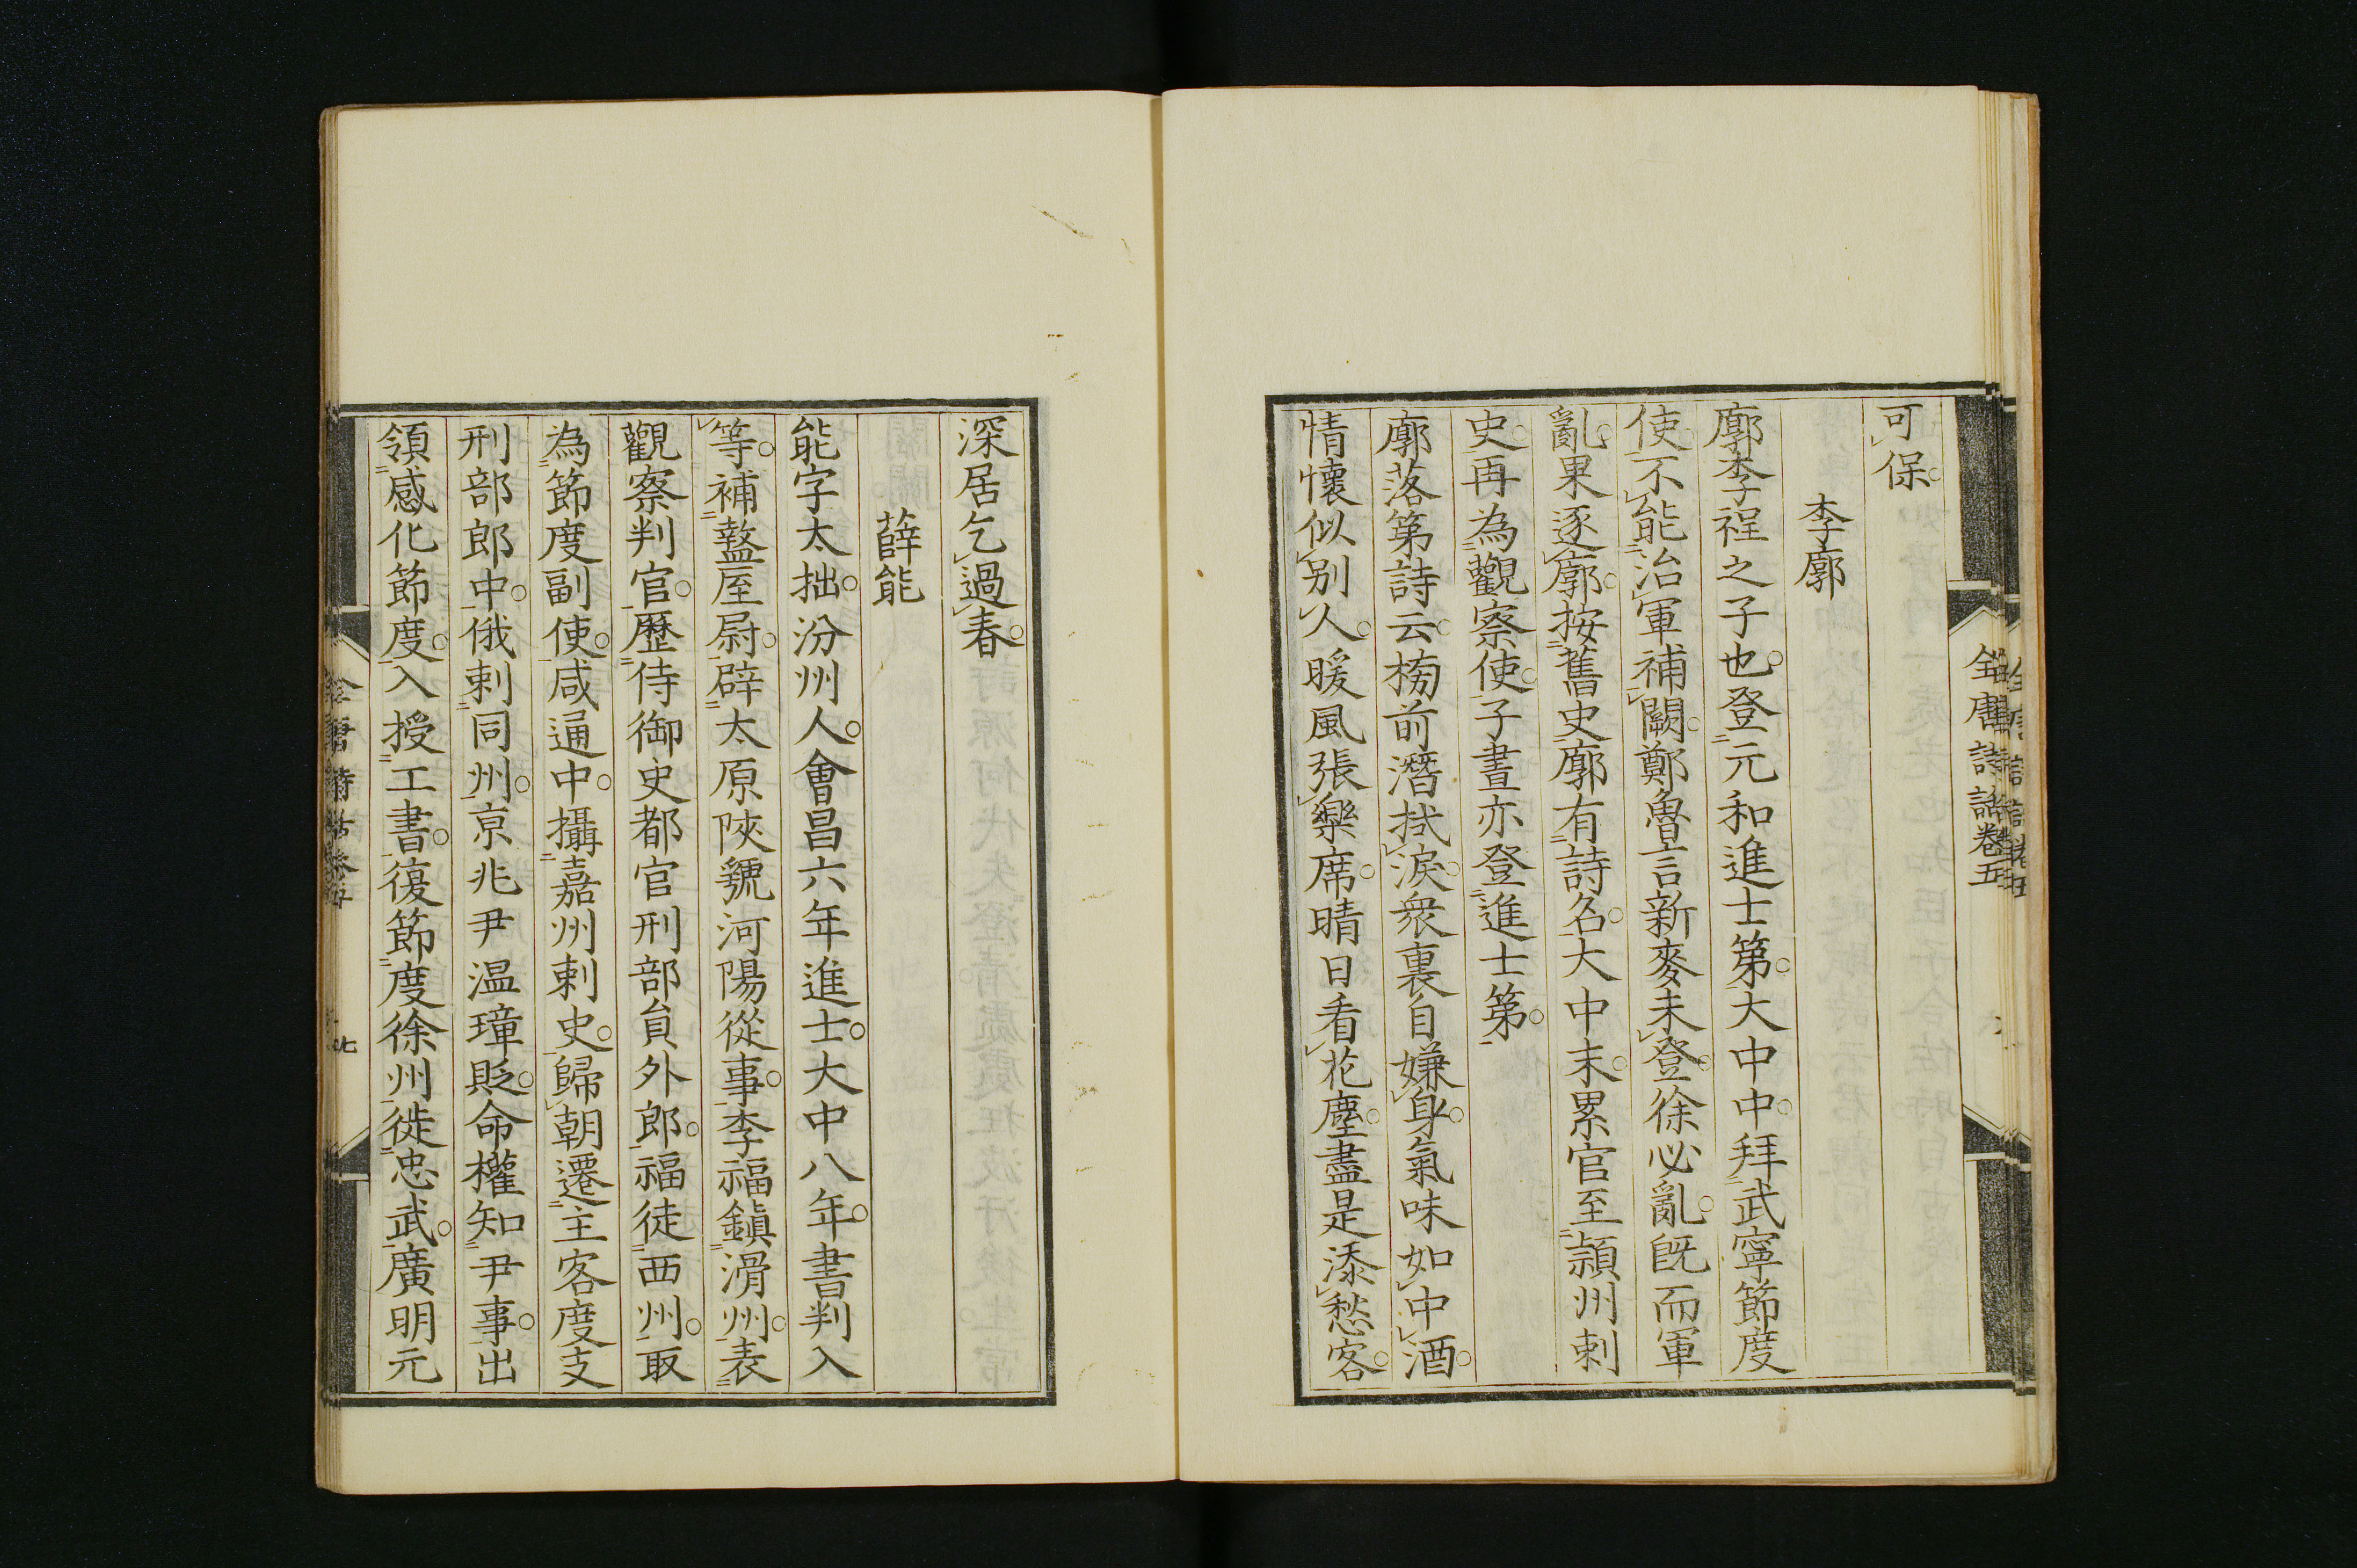 可保
李廓
廓李程之子也登元和進士第大中中拜武寧節度
使不能治軍補闕鄭魯言新麥未登徐必亂既而軍
亂果逐廓按舊史廓有詩名大中末累官至潁州刺
史再為觀察使子晝亦登進士第
廓落第詩云榜前潛拭淚衆裏自嫌身氣味如中酒
情懷似别人暖風張樂席晴日看花塵盡是添愁客
深居乞過春
薛能
能字太拙汾州人會昌六年進士大中八年書判入
等補盩厔尉辟太原陝虢河陽從事李福鎭滑州表
觀察判官歷侍御史都官刑部貟外郎福徒西州取
為節度副使咸通中攝嘉州刺史歸朝遷主客度支
刑部郎中俄刺同州京兆尹温璋貶命權知尹事出
領感化節度入授工書復節度徐州徙忠武廣明元
全唐詩話卷五